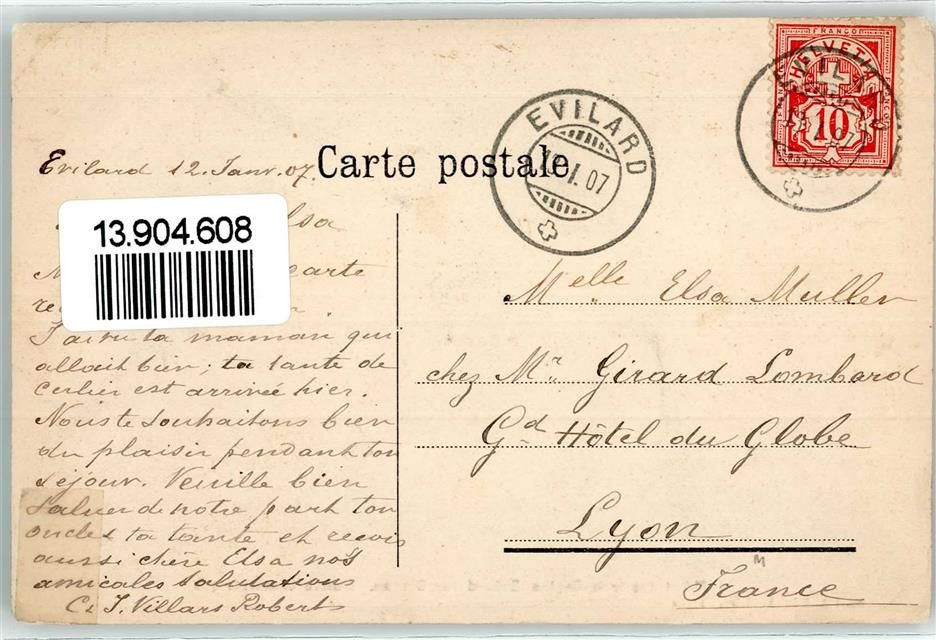 Carte postale
Evilard 12. Janv. 07.
13.904.608
Elsa
carte
J'ai vu ta maman qui
allait bien; ta tante de
cerlier est arrivée hier.
Nous te souhaitons bien
du plaisir pendant ton
séjour. Veuille bien
saluer de notre part ton
oncle & ta tante et reçois
aussi chère Elsa nos
amicales salutations
C & J. Villars Robert
EVILARD
I. 07
FRANCO
HELVETIA
10
Melle Elsa Muller
chez Mr. Girard Lombard
Gd Hôtel du Globe
Lyon
France